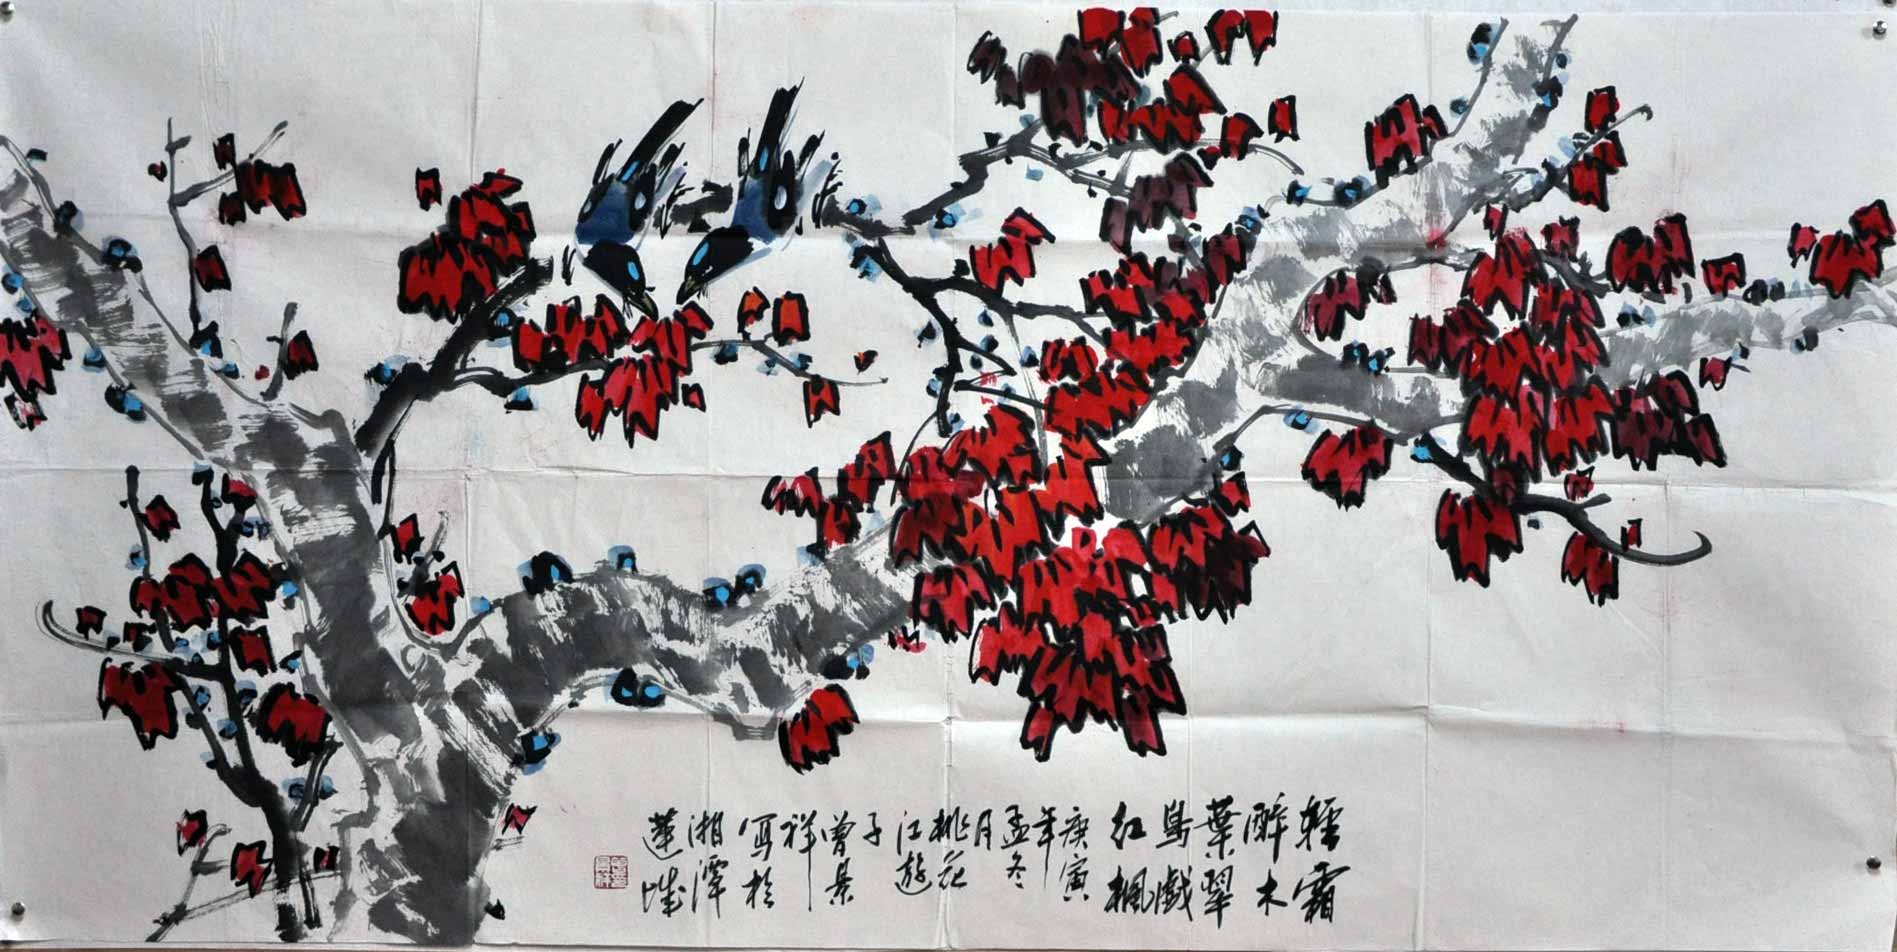 輕霜
醉木
葉翠
鳥戲
红楓
庚寅
年
孟冬
月
桃花
江遊
子
曾景
祥
寫於
湘潭
蓮城